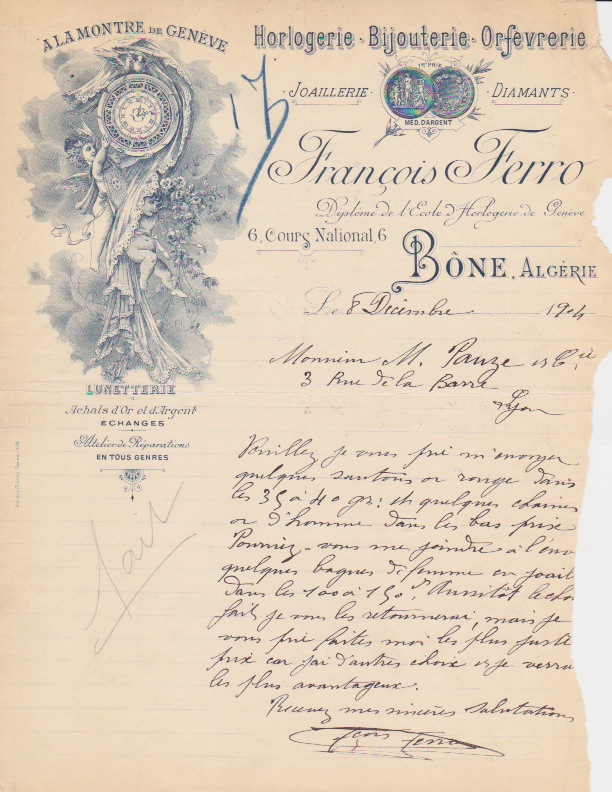 A LA MONTRE DE GENÈVE
Horlogerie · Bijouterie · Orfèvrerie
1er PRIX
· JOAILLERIE · DIAMANTS ·
MÉD. D'ARGENT
17
François Ferro
Diplômé de l'Ecole d'Horlogerie de Genève
6, Cours National, 6
BÔNE, ALGÉRIE
Le 8 Décembre 1904
Monsieur M. Pauze et Cie
3 Rue de la Barre
Lyon
LUNETTERIE
Achats d'Or et d'Argent
ECHANGES
Atelier de Réparations
EN TOUS GENRES
Veuillez je vous prie m'envoyer
quelques sautoirs or rouge dans
les 35 à 40 gr: et quelques chaines
or d'homme dans les bas prix
Pourriez-vous me joindre à l'env
quelques bagues de femme en joail
dans les 100 à 150 f. Aussitôt le choi
fait je vous les retournerai, mais je
vous prie faites moi les plus juste
prix car j'ai d'autres choix et je verrai
les plus avantageux.
Recevez mes sincères salutations
Fçois Ferro
fait